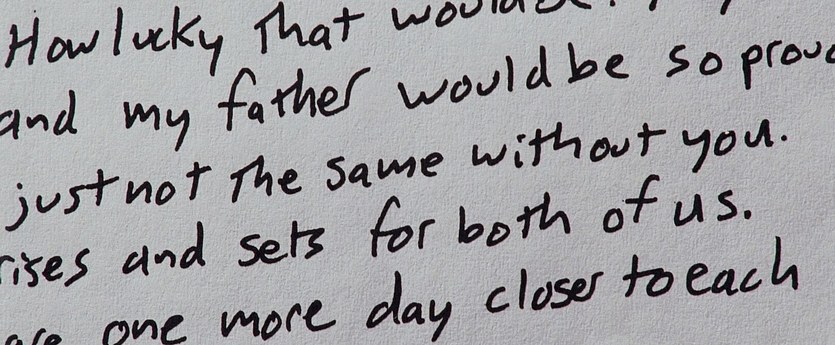 How lucky That would
and my father would be so prou
just not The same without you.
rises and sets for both of us.
are one more day closer to each